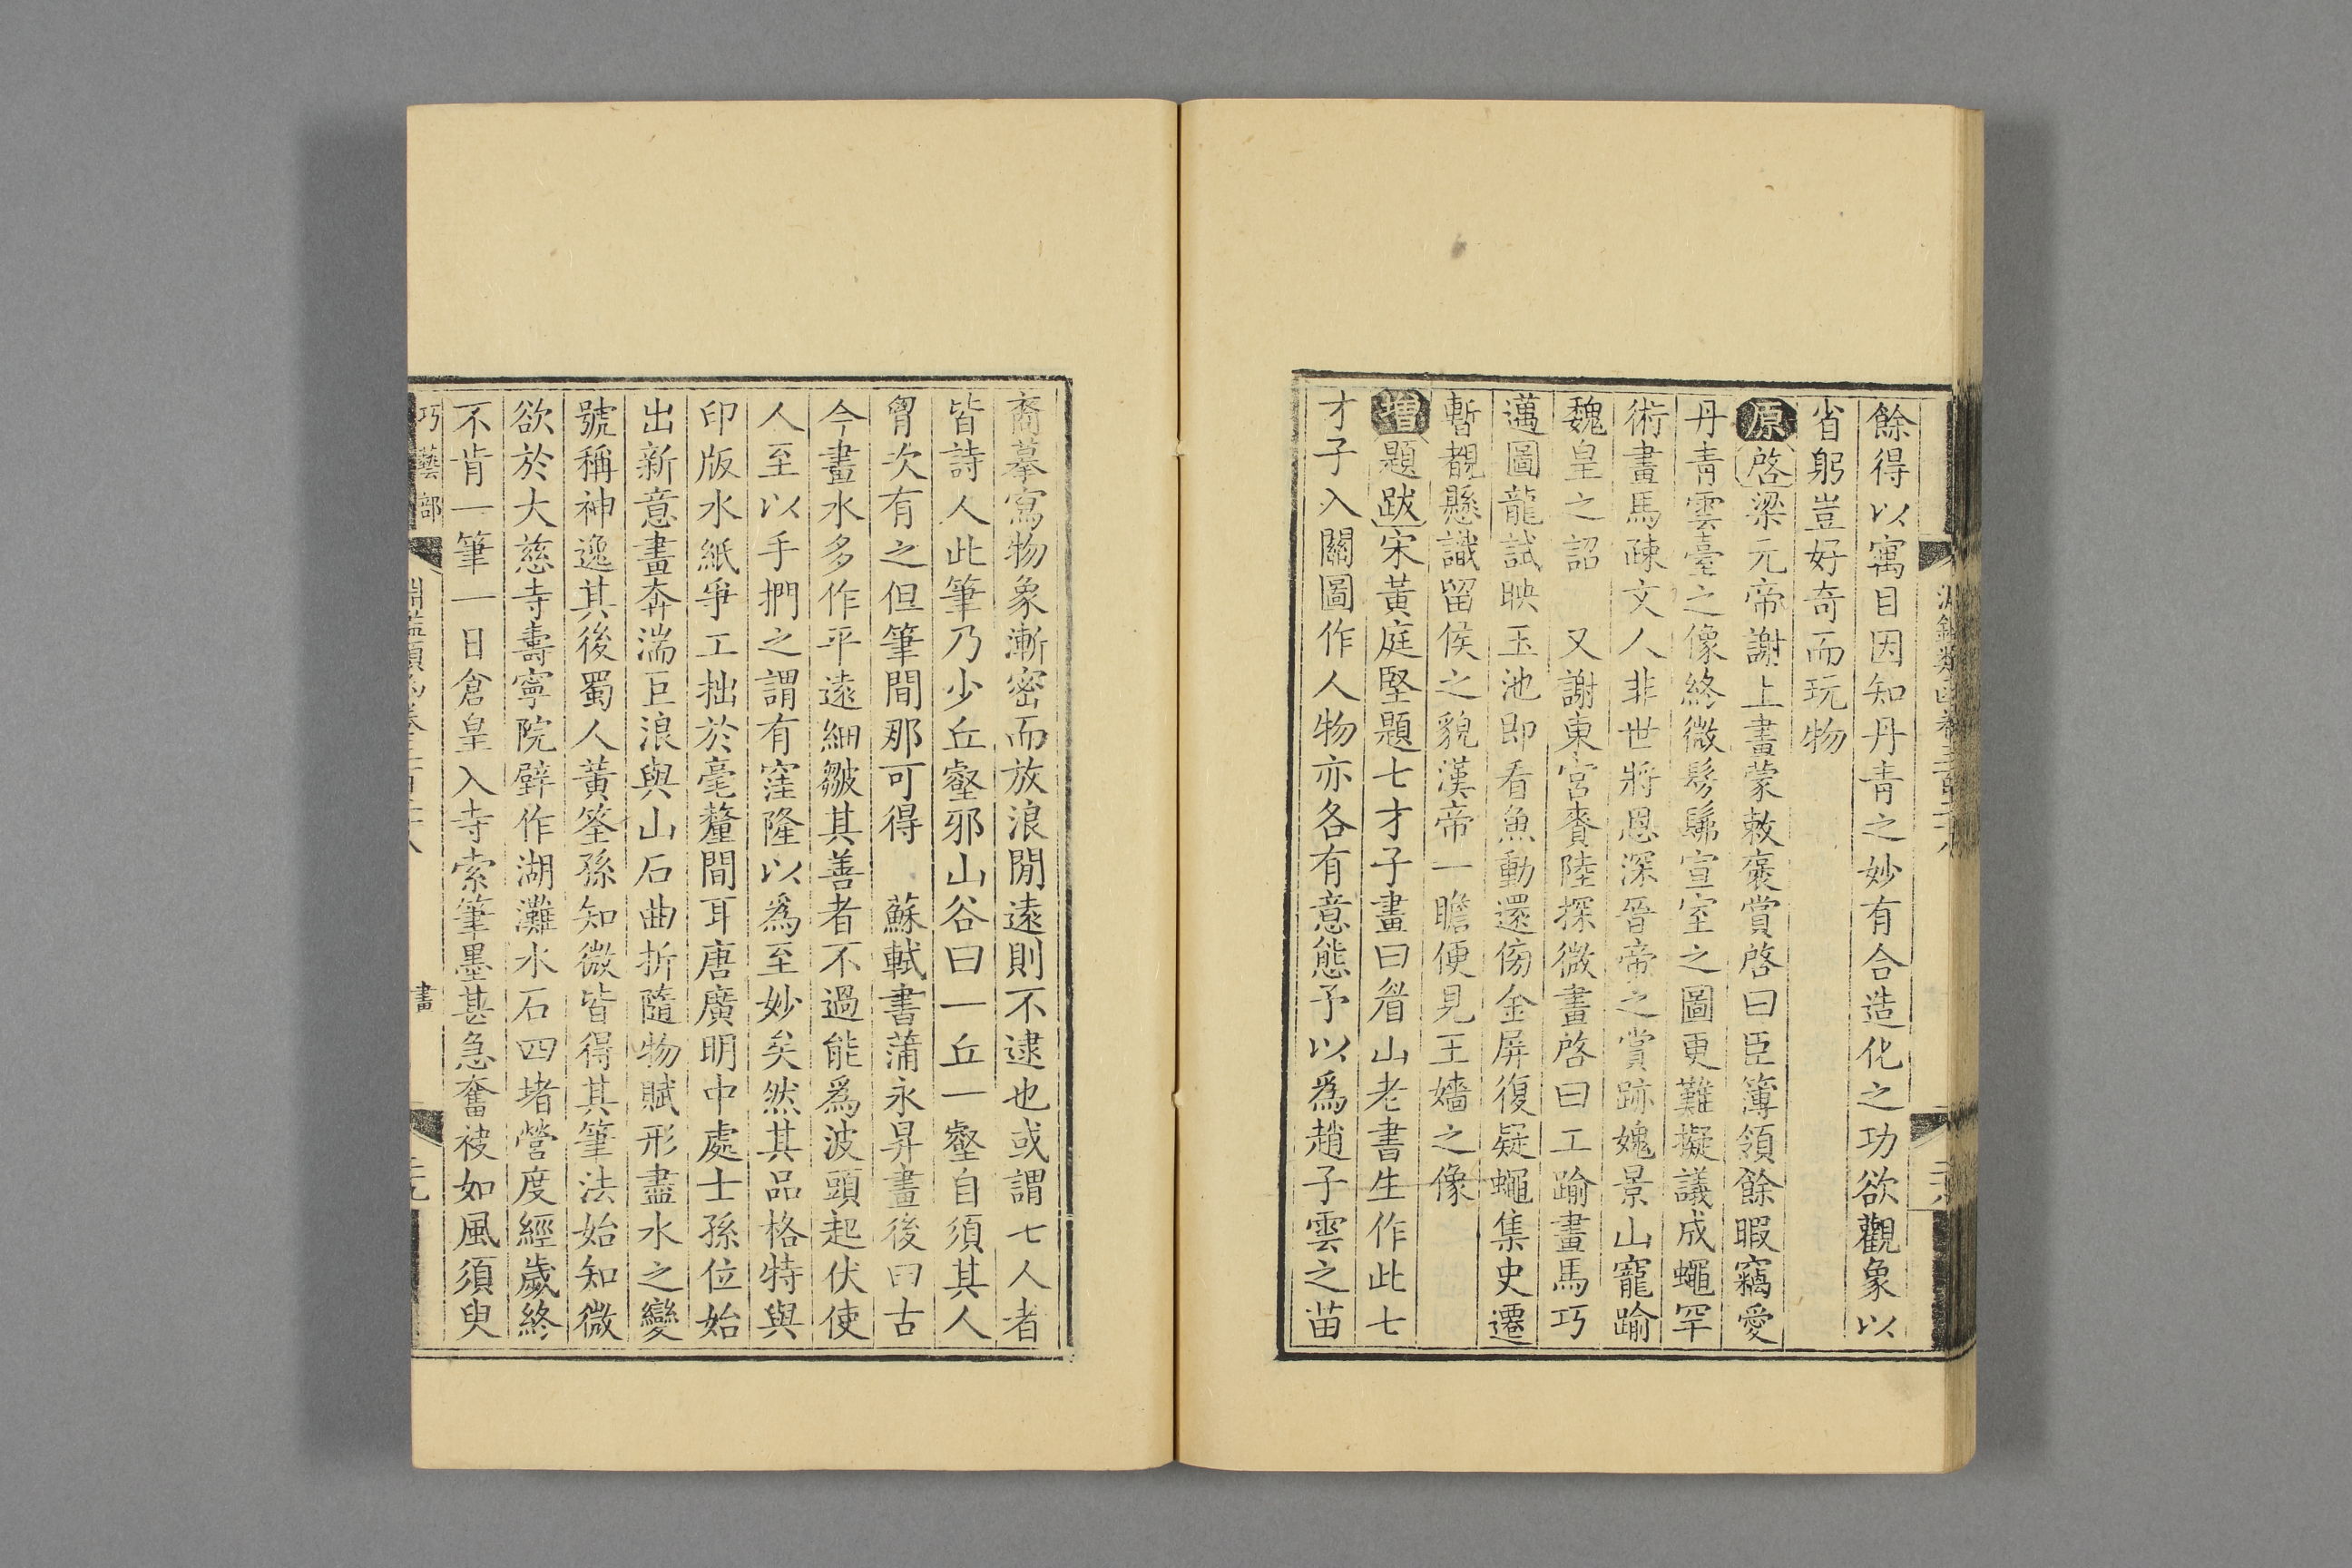 餘得以寓目因知丹青之妙有合造化之功欲觀象以
省躬豈好奇而玩物
原啓梁元帝謝上畫蒙敕褒賞啓曰臣簿領餘暇竊愛
丹青雲臺之像終微髣髴宣室之圖更難擬議成蠅罕
術畫馬疎文人非世將恩深晉帝之賞跡媿景山寵踰
魏皇之詔　又謝東宮賚陸探微畫啓曰工踰畫馬巧
邁圖龍試映玉池即看魚動還傍金屏復疑蠅集史遷
暫覩懸識留侯之貌漢帝一瞻便見王嬙之像
增題跋宋黃庭堅題七才子畫曰眉山老書生作此七
才子入關圖作人物亦各有意態予以爲趙子雲之苗
裔摹寫物象漸密而放浪閒遠則不逮也或謂七人者
皆詩人此筆乃少丘壑邪山谷曰一丘一壑自須其人
胷次有之但筆間那可得　蘇軾書蒲永昇畫後曰古
今畫水多作平遠細皺其善者不過能爲波頭起伏使
人至以手捫之謂有窪隆以爲至妙矣然其品格特與
印版水紙爭工拙於毫釐間耳唐廣明中處士孫位始
出新意畫奔湍巨浪與山石曲折隨物賦形盡水之變
號稱神逸其後蜀人黃筌孫知微皆得其筆法始知微
欲於大慈寺壽寧院壁作湖灘水石四堵營度經歲終
不肯一筆一日倉皇入寺索筆墨甚急奮袂如風須臾
巧藝部　畫